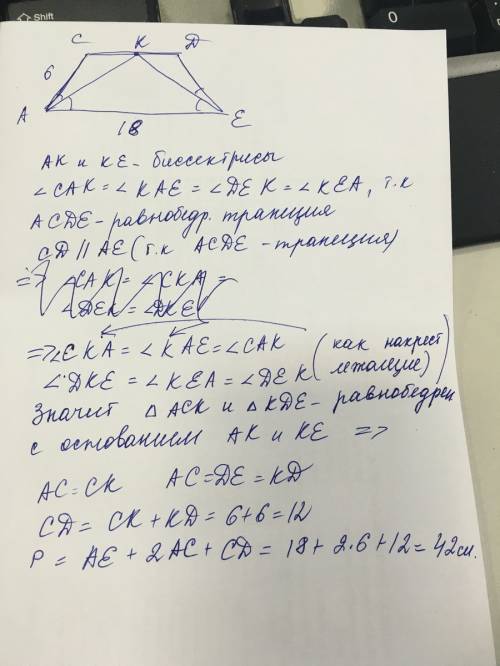 Shift
0
C K D
6
A E
18
AK и KE - биссектрисы
∠CAK = ∠KAE = ∠DEK = ∠KEA, т.к
ACDE - равнобедр. трапеция
CD || AE (т.к ACDE - трапеция)
=> ∠CAK = ∠CKA =
∠DEK = ∠DKE
=> ∠CKA = ∠KAE = ∠CAK (как накрест
∠DKE = ∠KEA = ∠DEK лежащие)
Значит △ACK и △KDE - равнобедрен
с основанием AK и KE =>
AC = CK AC = DE = KD
CD = CK + KD = 6 + 6 = 12
P = AE + 2AC + CD = 18 + 2·6 + 12 = 42 см.